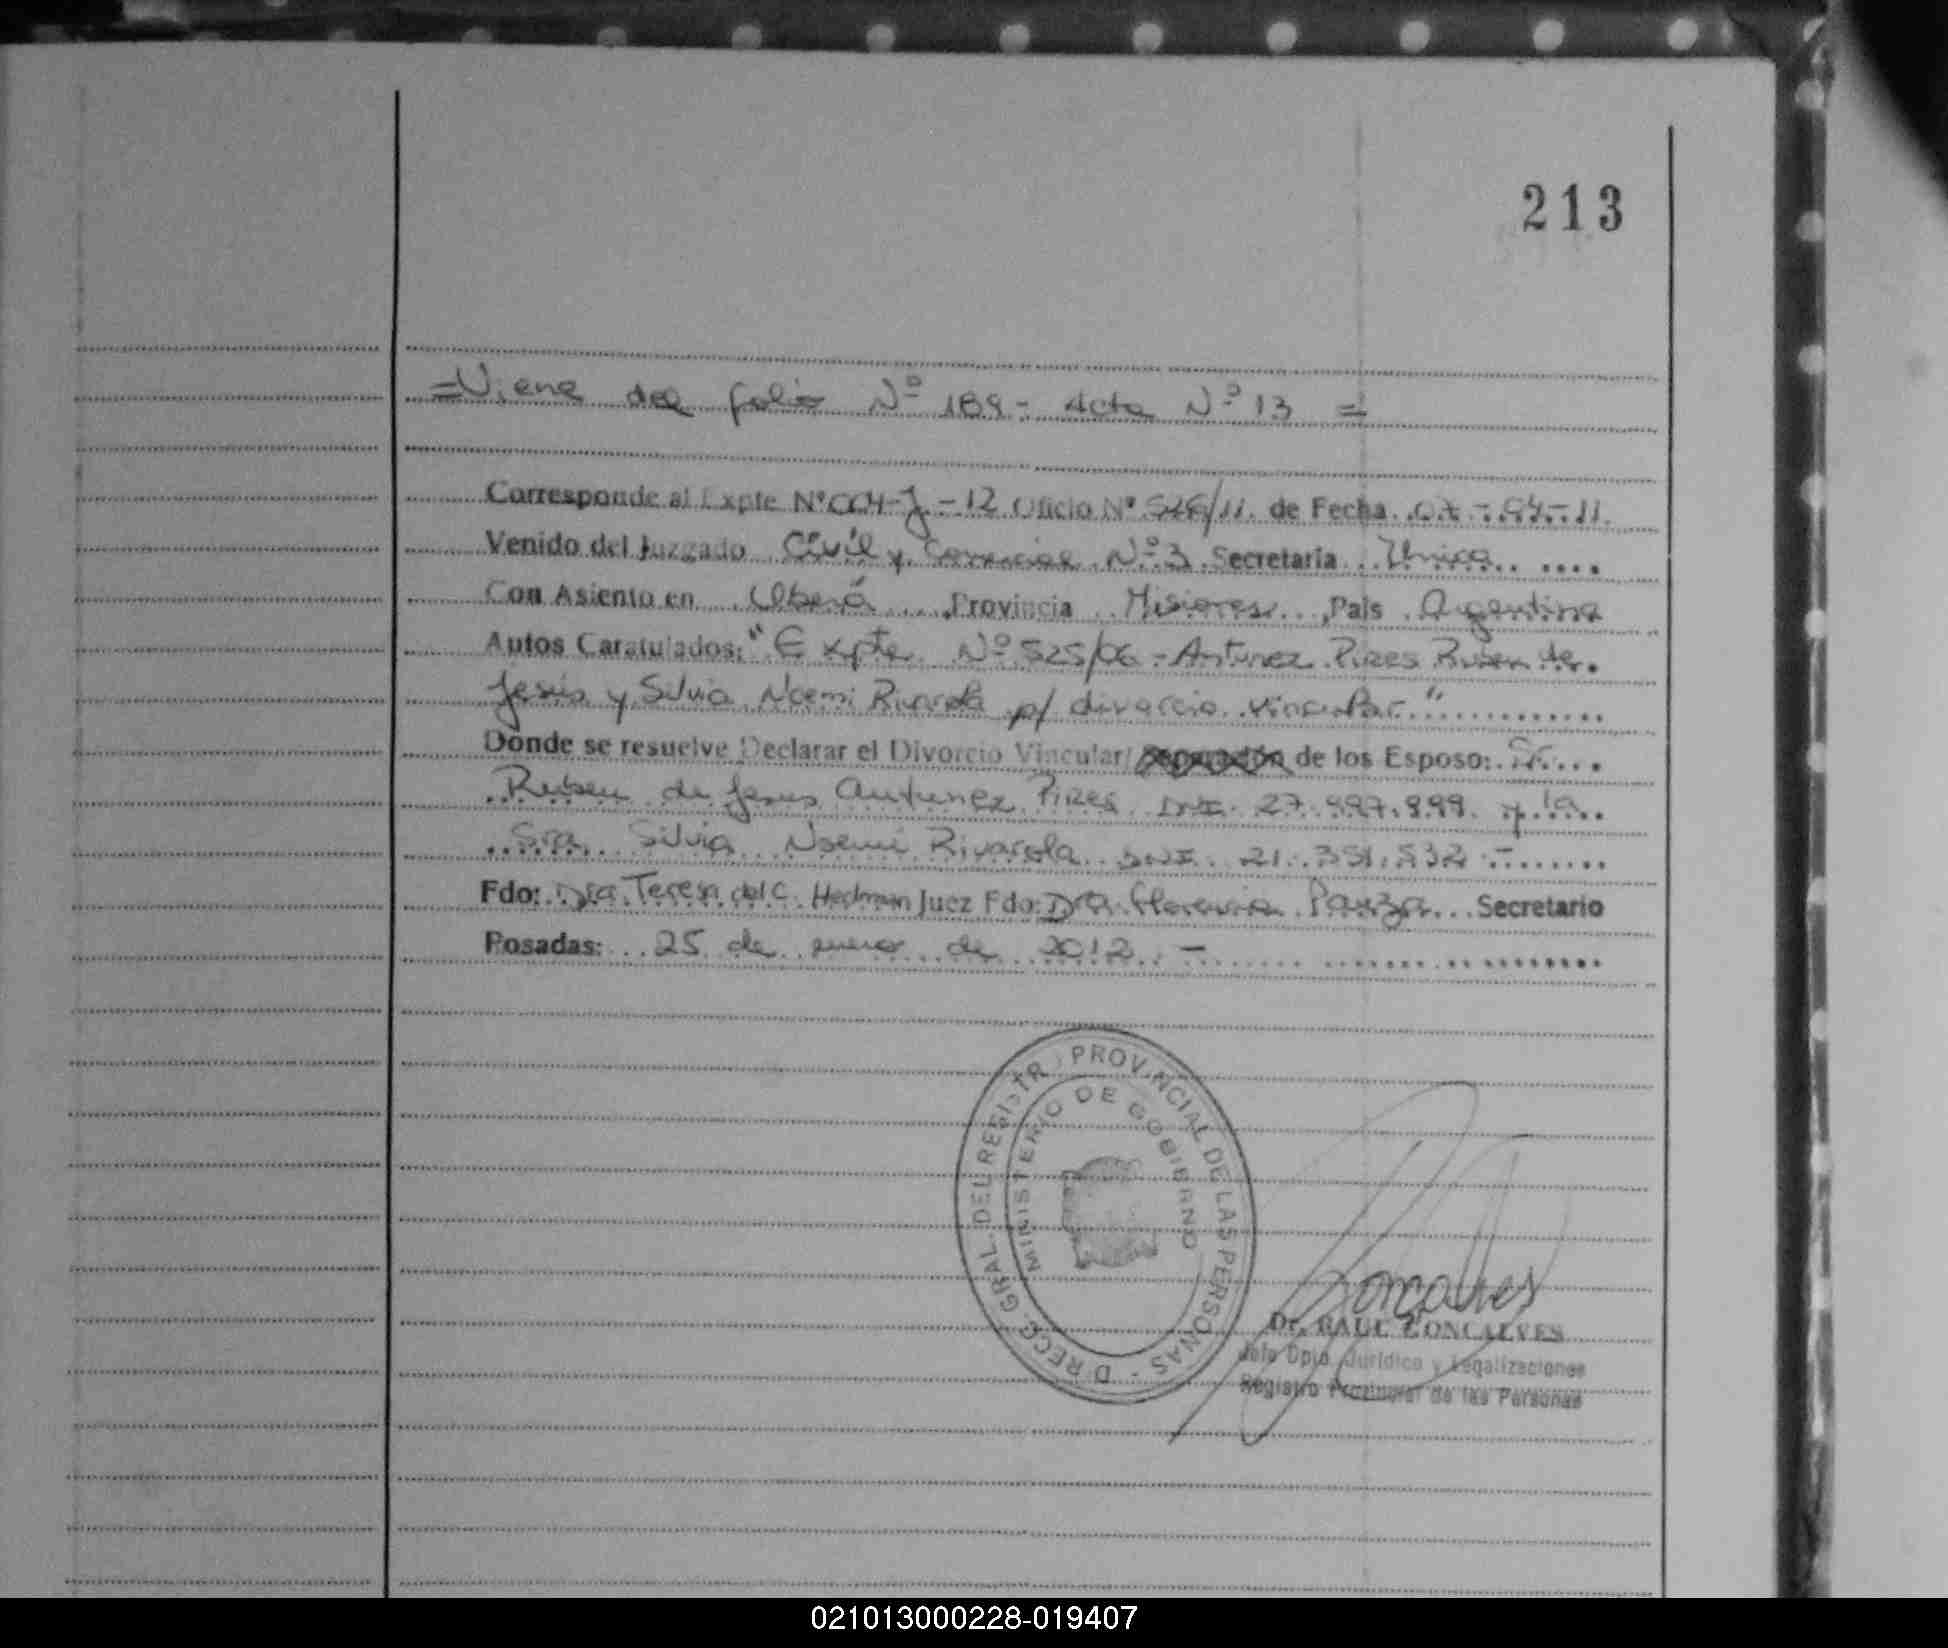 213
=Viene del folio Nº 189 - Acta Nº 13 =
Corresponde al Expte Nº 004-J-12 Oficio Nº 526/11 de Fecha 07-04-11.
Venido del Juzgado Civil y Comercial Nº 3 Secretaria Unica
Con Asiento en Oberá Provincia Misiones País Argentina
Autos Caratulados: "Expte Nº 525/06 - Antunez Pires Ruben de
Jesús y Silvia Noemi Rivarola p/ divorcio vincular"
Donde se resuelve Declarar el Divorcio Vincular/ Separación de los Esposo: Sr.
Ruben de Jesus Antunez Pires DNI. y la
Sra. Silvia Noemi Rivarola DNI. 21.351.532 -
Fdo: Dra. Teresa del C. Hedman Juez Fdo: Dra Panza Secretario
Posadas: 25 de enero de 2012 -
DIRECC. GRAL. DEL REGISTRO PROVINCIAL DE LAS PERSONAS -
MINISTERIO DE GOBIERNO
Gonçalves
Dr. RAUL GONCALVES
Jefe Dpto. Jurídico y Legalizaciones
Registro Provincial de las Personas
021013000228-019407